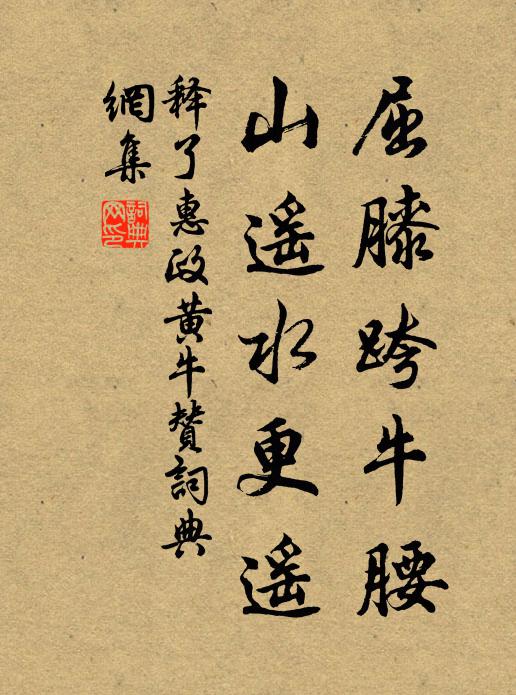 屈膝跨牛腰
山遥水更遥
释了惠政黄牛赞詞典
網集
詞典網印